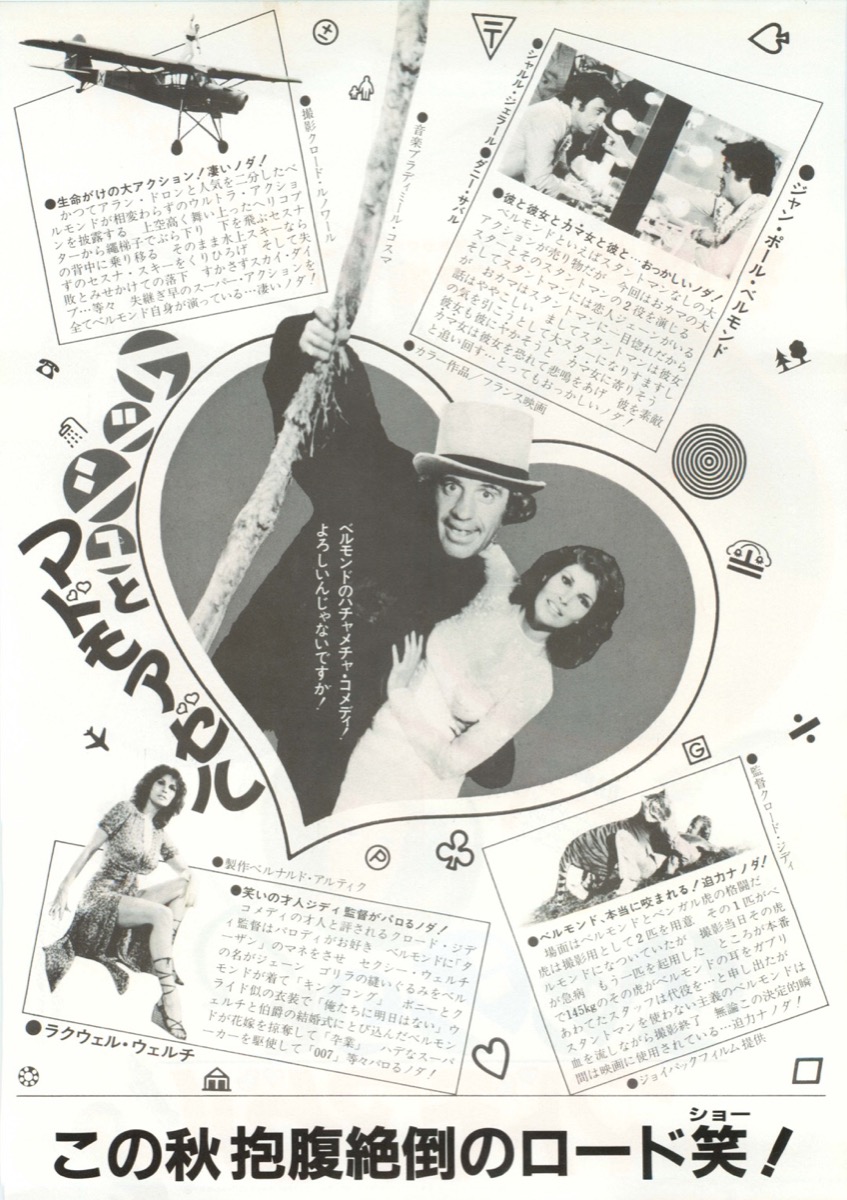 ●撮影クロード・ルノワール
●生命がけの大アクション!凄いノダ!
かつてアラン・ドロンと人気を二分したベ
ルモンドが相変わらずのウルトラ・アクショ
ンを披露する 上空高く舞い上ったヘリコプ
ターから縄梯子でぶら下り 下を飛ぶセスナ
の背中に乗り移る そのまま水上スキーなら
ずのセスナ・スキーをくりひろげ そして失
敗とみせかけての落下 すかさずスカイ・ダイ
ブ…等々 失継ぎ早のスーパー・アクションを
全てベルモンド自身が演っている…凄いノダ!
●音楽ブラディミール・コスマ
〒
●シャルル・ジェラール●ダニー・サバル
●ジャン・ポール・ベルモンド
●彼と彼女とカマ女と彼と…おっかしいノダ!
ベルモンドといえばスタントマンなしの大
アクションが売り物だが 今回はおカマの大
スターとそのスタントマンの2役を演じる
そしてスタントマンには恋人ジェーンがいる
おカマはスタントマンに一目惚れだから
話はややこしい ましてスタントマンは彼女
の気を引こうとして大スターになりすますし
彼女も彼にヤかそうと カマ女に寄りそう
カマ女は彼女を恐れて悲鳴をあげ 彼を素敵
と追い回す…とってもおっかしいノダ!
●カラー作品/フランス映画
コニャックとマドモアゼル
ベルモンドのハチャメチャ・コメディ!
よろしいんじゃないですか!
G
P
●製作ベルナルド・アルティク
●笑いの才人ジディ監督がパロるノダ!
コメディの才人と評されるクロード・ジデ
ィ監督はパロディがお好き ベルモンドに「タ
ーザン」のマネをさせ セクシー・ウェルチ
の名がジェーン ゴリラの縫いぐるみをベル
モンドが着て「キングコング」 ボニーとク
ライド似の衣装で「俺たちに明日はない」ウ
ェルチと伯爵の結婚式にとび込んだベルモン
ドが花嫁を掠奪して「卒業」 ハデなスーパ
ーカーを駆使して「007」等々パロるノダ!
●ラクウェル・ウェルチ
●監督クロード・ジディ
●ベルモンド、本当に咬まれる!迫力ナノダ!
場面はベルモンドとベンガル虎の格闘だ
虎は撮影用として2匹を用意 その1匹がベ
ルモンドになついていたが 撮影当日その虎
が急病 もう一匹を起用した ところが本番
で145kgのその虎がベルモンドの耳をガブリ
あわてたスタッフは代役を…と申し出たが
スタントマンを使わない主義のベルモンドは
血を流しながら撮影終了 無論この決定的瞬
間は映画に使用されている…迫力ナノダ!
●ジョイパックフィルム提供
この秋抱腹絶倒のロード笑!
ショー